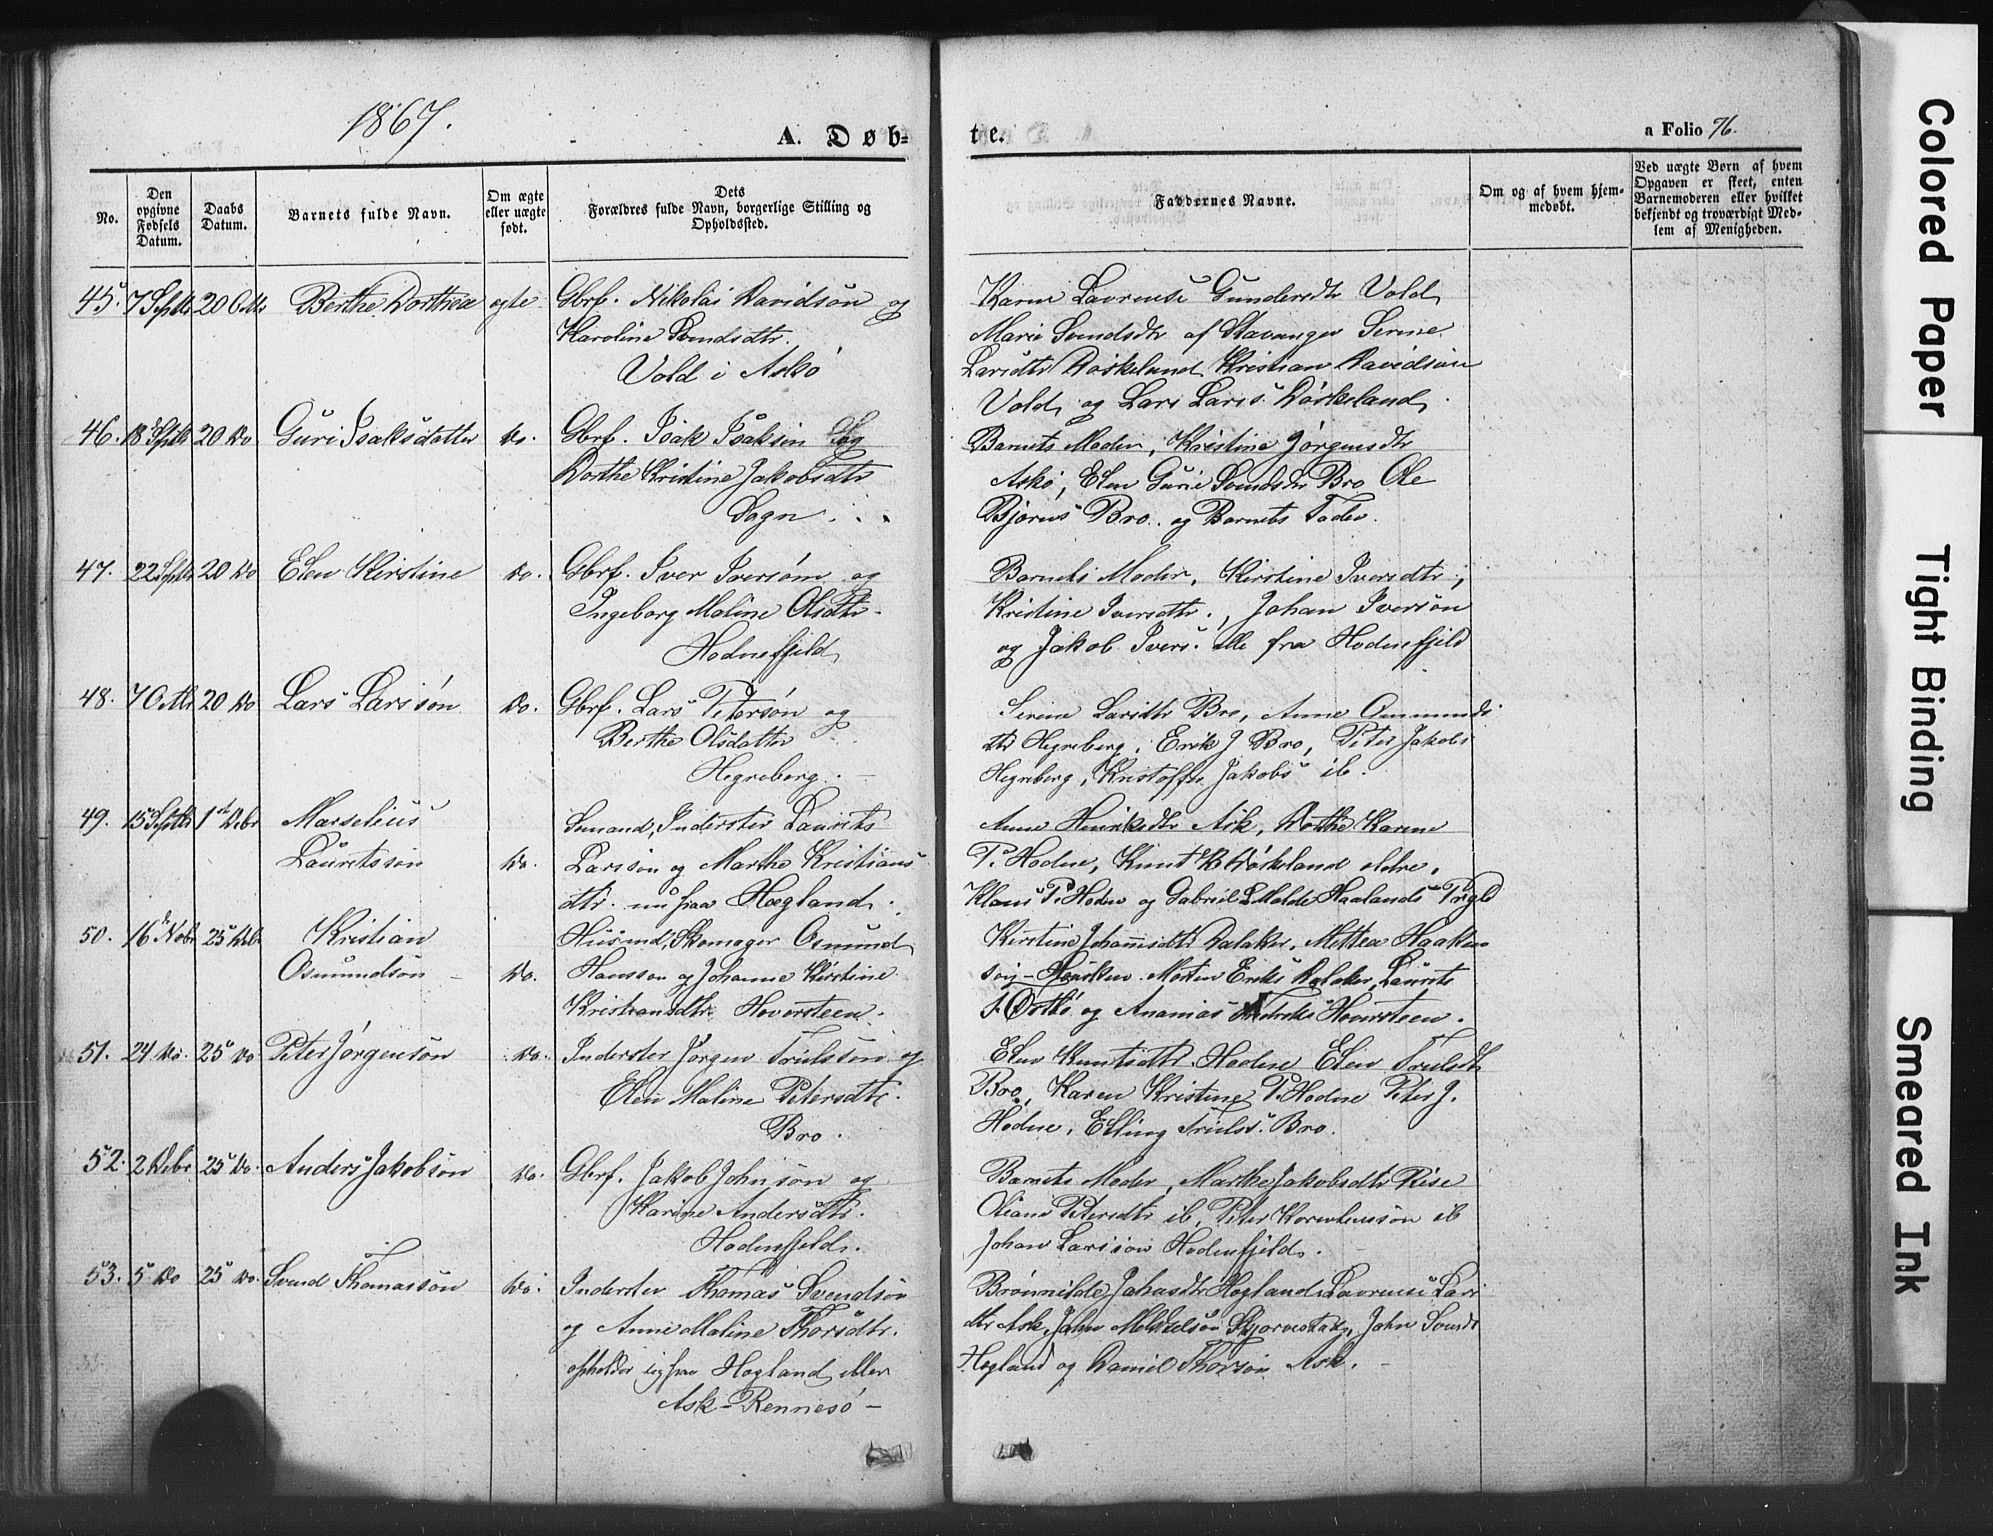 1867.
A. Døb-
te.
a Folio 76.
No.
Den opgivne Fødsels Datum.
Daabs Datum.
Barnets fulde Navn.
Om ægte eller uægte født.
Dets Forældres fulde Navn, borgerlige Stilling og Opholdssted.
Faddernes Navne.
Om og af hvem hjemmedøbt.
Ved uægte Børn af hvem Opgaven er skeet, enten Barnemoderen eller hvilket bekjendt og troværdigt Medlem af Menigheden.
45. 7 Septbr 20 Octbr Berthe Dorthea ægte Gbrf. Nikolai Davidsøn og
Karoline Svendsdtr.
Vold i Askø
Karen Lavrense Gundersdtr Vold,
Marie Svendsdtr af Stavanger Serine
Larsdtr Dørkeland, Kristian Davidsøn
Vold, og Lars Lars. Dørkeland.
46. 18 Septbr 20 Do Guri Isaksdatter Do. Gbrf. Isak Isaksøn og
Dorthe Kristine Jakobsdtr
Sogn.
Barnets Moder, Kristine Jørgensdtr
Askø, Elen Gurie Svendsdtr Bro Ole
Bjørns Bro. og Barnets Fader.
47. 22 Septbr 20 Do Elen Kirstine Do. Gbrf. Iver Iversøn og
Ingeborg Maline Olsdtr.
Hodnefjeld,
Barnets Moder, Kirstine Iversdtr,
Kristine Iversdtr., Johan Iversøn
og Jakob Ivers. alle fra Hodnefjeld
48. 7 Octbr 20 Do Lars Larssøn Do. Gbrf. Lars Petersøn og
Berthe Olsdatter
Hegreberg.
Serine Larsdtr Bro, Anne Osmunds
dtr Hegreberg, Erik J Bro, Peter Jakobs
Hegreberg, Kristoffer Jakobs ib.
49. 15 Septbr 1ste Debr Marselius
Lauritssøn Do.
Sømand, Inderster Laurits
Larssøn og Marthe Kristians
dtr. nu paa Hægland.
Anne Henriksdtr Ask, Dorthe Karine
P. Hodne, Knut B Dørkeland eldre,
Klaus P. Hodne og Gabriel L Molde Haalands
50. 16de Nobr 25 Debr Kristian
Osmundsøn Do.
Husmd, Skomager Osmund
Hanssøn og Johanne Kirstine
Kristiansdtr. Hoversteen.
Kirstine Johannesdtr Dalaker, Mettea Haakon
søn Morten Eriks Dalaker, Laurits
og Ananias Hoversteen.
51. 24 Do. 25 Do Peter Jørgensøn Do. Inderster Jørgen Trulssøn og
Elen Maline Petersdtr.
Bro.
Elen Knutsdtr Hodne Elen Trulsdtr
Bro, Karen Kristine P. Hodne Peter J.
Hodne, Elling Truls. Bro.
52. 2 Debr 25 Do. Anders Jakobsøn Do. Gbrf. Jakob Johnsøn og
Karine Andersdtr.
Hodnefjeld.
Barnets Moder, Marthe Jakobsdtr Rise
Oliane Petersdtr ib, Peter Korneliussøn ib
Johan Larssøn Hodnefjeld.
53. 5 Do 25 Do. Svend Thomassøn Do. Inderster Thomas Svendsøn
og Anne Maline Thorsdtr.
opholder sig paa Hogland eller
Ask-Rennesø
Brønnilde Johasdtr Hogland, Lavrense Lars
dtr Ask, John Mikkelsøn John Svends
Hogland og Daniel Thorsøn Ask.
Colored Paper
Tight Binding
Smeared Ink